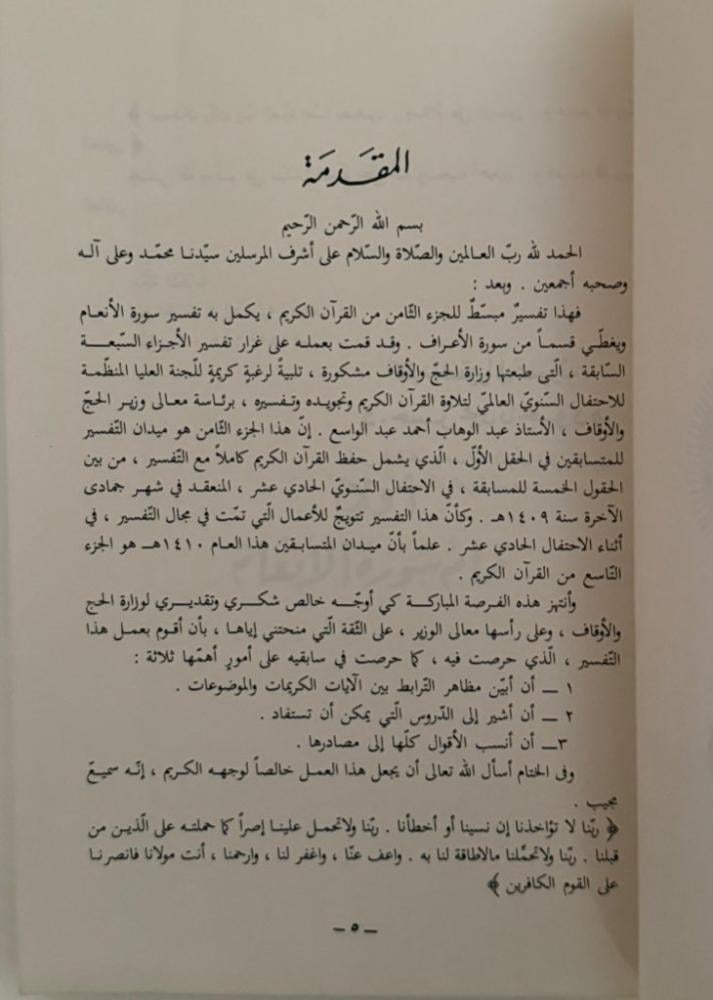 المقَدمَة
بسم الله الرّحمن الرّحيم
الحمد لله ربّ العالمين والصّلاة والسّلام على أشرف المرسلين سيّدنا محمّد وعلى آله
وصحبه أجمعين . وبعد :
فهذا تفسيرٌ مبسّطٌ للجزء الثّامن من القرآن الكريم ، يكمل به تفسير سورة الأنعام
ويغطّي قسماً من سورة الأعراف . وقد قمت بعمله على غرار تفسير الأجزاء السّبعة
السّابقة ، الّتى طبعتها وزارة الحجّ والأوقاف مشكورة ، تلبيةً لرغبةٍ كريمةٍ للّجنة العليا المنظّمة
للاحتفال السّنويّ العالميّ لتلاوة القرآن الكريم وتجويده وتفسيره ، برئاسة معالى وزير الحجّ
والأوقاف ، الأستاذ عبد الوهاب أحمد عبد الواسع . إنّ هذا الجزء الثّامن هو ميدان التّفسير
للمتسابقين في الحقل الأوّل ، الّذي يشمل حفظ القرآن الكريم كاملاً مع التّفسير ، من بين
الحقول الخمسة للمسابقة ، في الاحتفال السّنويّ الحادي عشر ، المنعقد في شهر جمادى
الآخرة سنة ١٤٠٩هـ . وكأنّ هذا التفسير تتويجٌ للأعمال الّتي تمّت في مجال التّفسير ، في
أثناء الاحتفال الحادي عشر . علماً بأنّ ميدان المتسابقين هذا العام ١٤١٠هـ هو الجزء
التّاسع من القرآن الكريم .
وأنتهز هذه الفرصة المباركة كي أوجّه خالص شكري وتقديري لوزارة الحج
والأوقاف ، وعلى رأسها معالى الوزير ، على الثّقة الّتي منحتني إياها ، بأن أقوم بعمل هذا
التّفسير ، الّذي حرصت فيه ، كما حرصت في سابقيه على أمورٍ أهمّها ثلاثة :
١ ــ أن أبيّن مظاهر التّرابط بين الآيات الكريمات والموضوعات .
٢ ــ أن أشير إلى الدّروس الّتي يمكن أن تستفاد .
٣ــ أن أنسب الأقوال كلّها إلى مصادرها .
وفى الختام أسأل الله تعالى أن يجعل هذا العمل خالصاً لوجهه الكريم ، إنّه سميعٌ
مجيب .
﴿ ربّنا لا تؤاخذنا إن نسينا أو أخطأنا . ربّنا ولاتحمل علينا إصراً كما حملته على الّذين من
قبلنا . ربّنا ولاتحمّلنا مالاطاقة لنا به . واعف عنّا ، واغفر لنا ، وارحمنا ، أنت مولانا فانصرنا
على القوم الكافرين ﴾
ــ ٥ ــ